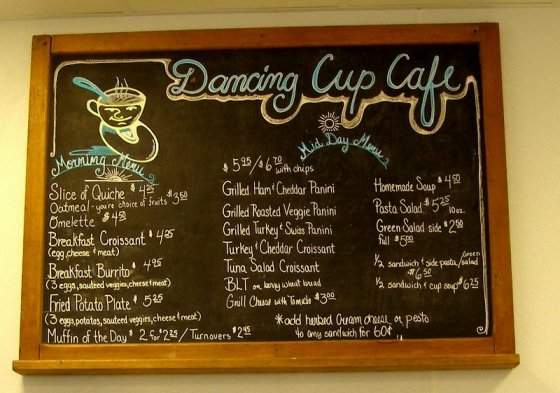 Dancing Cup Cafe
Morning Menu
Slice of Quiche $4.25
Oatmeal - you're choice of fruits $3.50
Omelette $4.50
Breakfast Croissant $4.95
(egg, cheese & meat)
Breakfast Burrito $4.95
(3 eggs, sauteed veggies, cheese & meat)
Fried Potato Plate $5.25
(3 eggs, potatos, sauteed veggies, cheese & meat)
Muffin of the Day $2 for $2.25 / Turnovers $2.45
Mid Day Menu
$5.95/$6.70
with chips
Grilled Ham & Cheddar Panini
Grilled Roasted Veggie Panini
Grilled Turkey & Swiss Panini
Turkey & Cheddar Croissant
Tuna Salad Croissant
BLT on honey wheat bread
Grill Cheese with Tomato $3.00
*add herbed cream cheese or pesto
to any sandwich for 60¢
Homemade Soup $4.50
Pasta Salad $5.25
10oz.
Green Salad side $2.50
full $5.00
1/2 sandwich & side pasta/green salad
$6.50
1/2 sandwich & cup soup $6.25